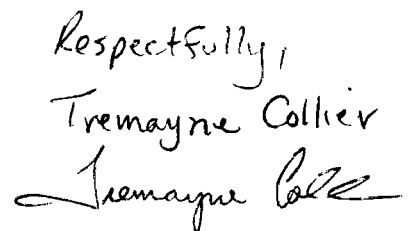 Respectfully,
Tremayne Collier
Tremayne Coll